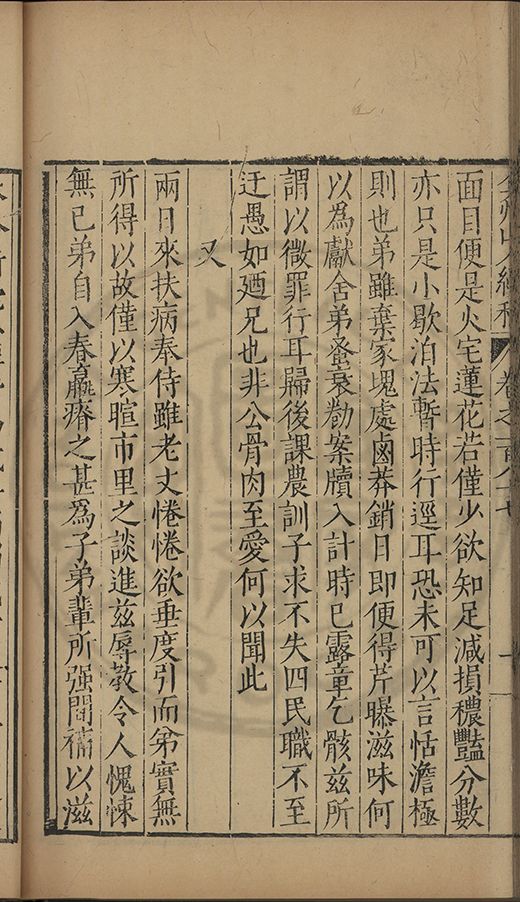 卷之一百八十七
面目便是火宅蓮花若僅少欲知足減損穠豔分數
亦只是小歇泊法暫時行逕耳恐未可以言恬澹極
則也弟雖棄家塊處鹵莽銷日即便得芹曝滋味何
以為獻舍弟蚤衰勌案牘入計時已露章乞骸兹所
謂以微罪行耳歸後課農訓子求不失四民職不至
迂愚如廼兄也非公骨肉至愛何以聞此
又
兩日來扶病奉侍雖老丈惓惓欲垂度引而弟實無
所得以故僅以寒暄市里之談進兹辱教令人愧悚
無已弟自入春羸瘠之甚爲子弟輩所强間補以滋